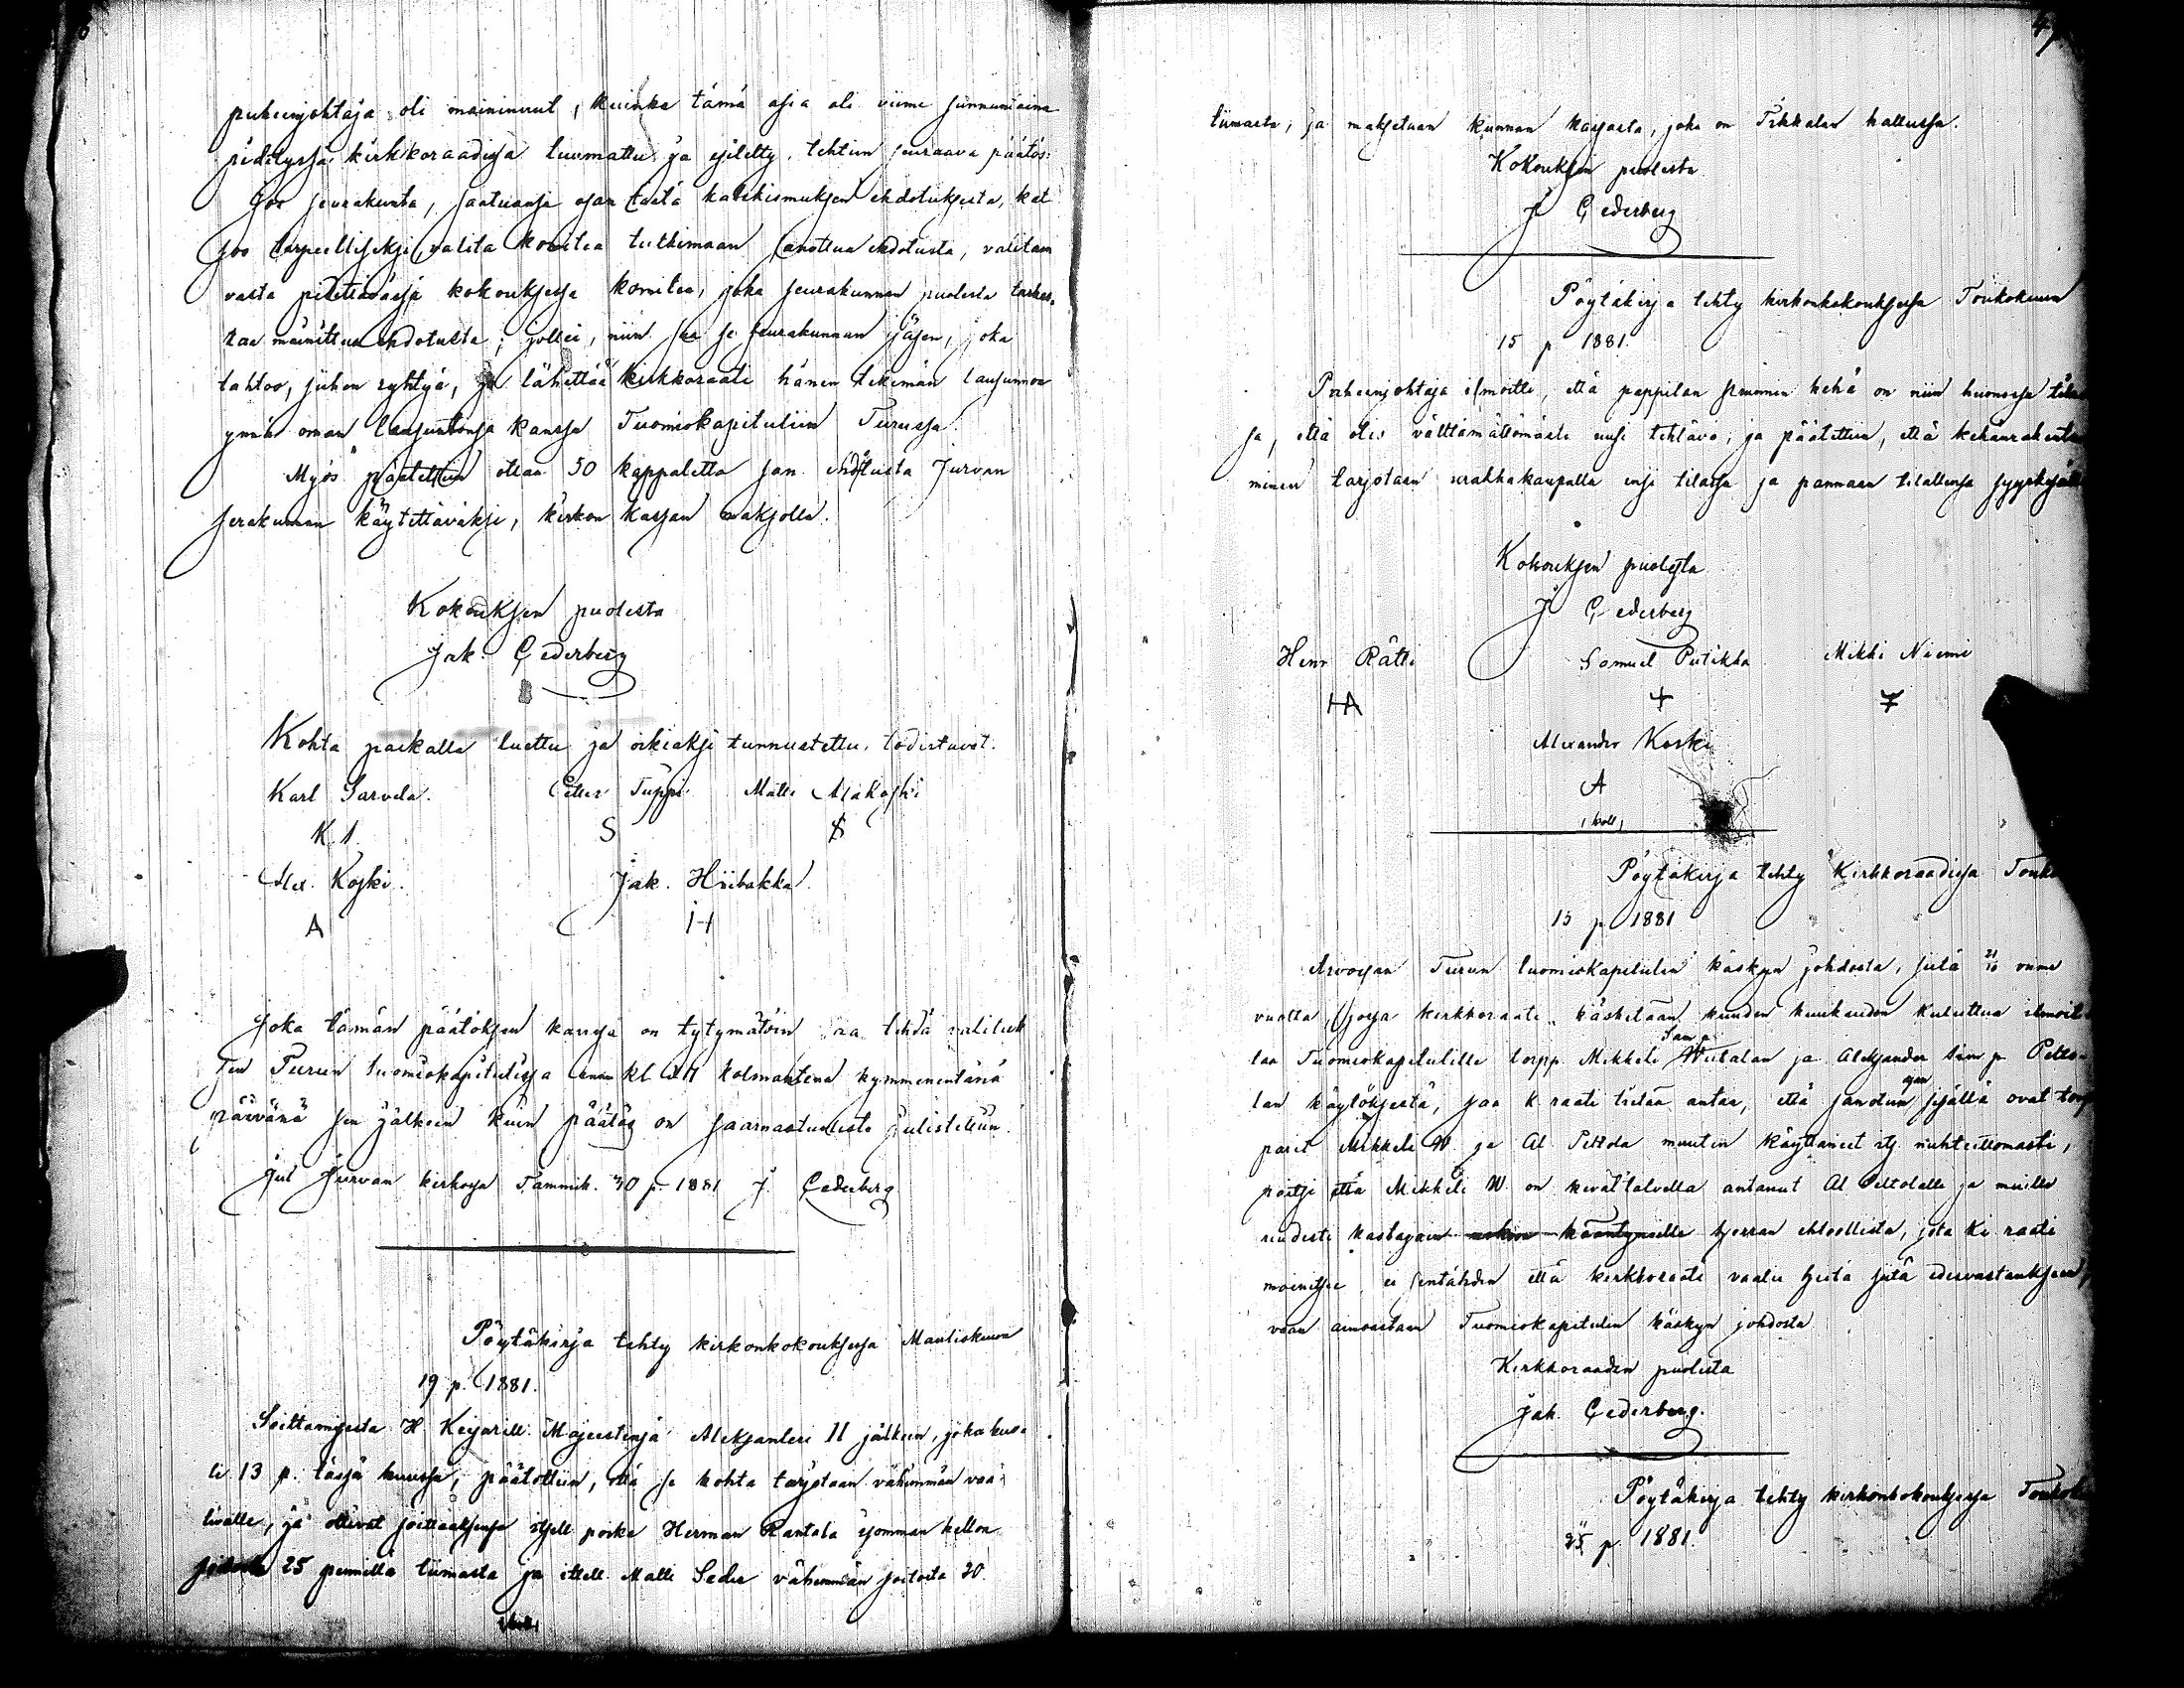 puheenjohtaja oli maininnut, kuinka tämä asia oli viime sunnuntaina
pidetyssä kirkkoraadissa luvattu ja esiletty, tehtiin seuraava päätös:
Jos seurakunta, saatuansa osan tästä katekismuksen ehdotuksesta, kat
soo tarpeelliseksi valita komitea tutkimaan sanottua ehdotusta, valitaan
vasta pidettävässä kokouksessa komitea, joka seurakunnan puolesta tarkas-
taa mainittua ehdotusta; jollei, niin saa se seurakunnan jäsen, joka
tahtoo, siihen ryhtyä, ja lähettää kirkkoraati hänen tekemän lausunnon
ynnä oman lausuntonsa kanssa Tuomiokapituliin Turussa.
Myös päätettiin ottaa 50 kappaletta san. ehdotusta Jurvan
serakunnan käytettäväksi, kirkon kassan maksolla.
Kokouksen puolesta
Jak. Cederberg
Kohta paikalla luettu ja oikiaksi tunnustettu, todistavat.
Karl Sarvela. Petter Tuppi Matti Alakoski
K. S. S $
Alex. Koski. Jak. Hiibakka.
A H
Joka tämän päätöksen kanssa on tytymätöin saa tehdä valituk
sen Turun tuomiokapitulissa ennen kl 12 kolmantena kymmenentänä
päivänä sen jälkeen kuin päätös on saarnastuolista julistettu.
Jul Jurvan kirkossa Tammik. 30 p. 1881 J. Cederberg
Pöytäkirja tehty kirkonkokouksessa Maaliskuun
19 p. 1881.
Soittamisesta H. Keisarill. Majesteetinsa Aleksanteri II jälkeen, joka kuo-
li 13 p. tässä kuussa, päätettiin, että se kohta tarjotaan vähimmän vaa-
tivalle, ja ottivat soittaaksensa itsell. poika Herman Rantala isomman kellon
soitosta 25 pennillä tiimasta ja itsell. Matti Seder vähemmän soitosta 20
47
tiimasta, ja maksetaan kunnan kassasta, joka on Tikkalan hallussa.
Kokouksen puolesta
J Cederberg
Pöytäkirja tehty kirkonkokouksessa Toukokuun
15 p 1881.
Puheenjohtaja ilmoitti, että pappilan kehä on niin huonossa tila
sa, että olis välttämättömästi uusi tehtävä; ja päätettiin, että kehänrakenta
minen tarjotaan urakkakaupalla ensi tilassa ja pannaan tilallensa
Kokouksen puolesta
J Cederberg
Henr Rätti Samuel Putikka Mikki Niemi
HA + 7
Alexander Koski
A
Pöytäkirja tehty Kirkkoraadissa Touko
15 p 1881
Arvoisan Turun tuomiokapitulin käskyn johdosta, siitä 21/10 viime
vuotta, jossa kirkkoraati käsketään kuuden kuukauden kuluttua ilmoit
taa Tuomiokapitulille torpp. Mikkeli Sam p. Witalan ja Aleksander Sim p Petto-
lan käytöksestä, saa k. raati tietää antaa, että sanotun ajan sisällä ovat torp
parit Mikkeli W. ja Al. Peltola muuten käyttäneet itz. nuhteettomasti,
paitsi että Mikkeli W. on kevättalvella antanut Al Peltolalle ja muille
uudesti kastajain uskoon kääntyneille Herran ehtoollista, jota Ki raati
mainitsee, ei sentähden että kirkkoraati vaatii heitä siitä edesvastaukseen,
vaan ainoastaan Tuomiokapitulin käskyn johdosta
Kirkkoraadin puolesta
Jak. Cederberg.
Pöytäkirja tehty kirkonkokouksessa Touko
25 p 1881.